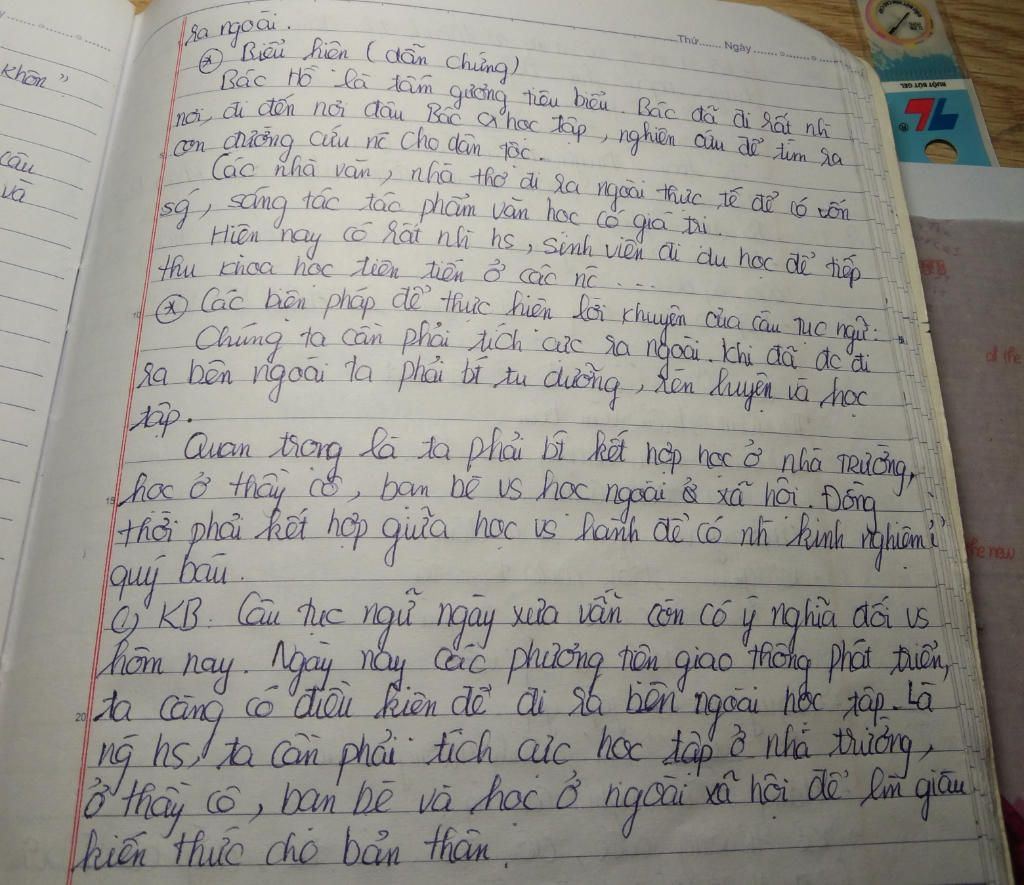 khôn"
câu
và
Thứ...... Ngày......
ra ngoài.
* Biểu hiện (dẫn chứng)
Bác Hồ là tấm gương tiêu biểu. Bác đã đi rất nh
nơi, đi đến nơi đâu Bác học tập, nghiên cứu để tìm ra
con đường cứu nc cho dân tộc.
Các nhà văn, nhà thơ đi ra ngoài thực tế để có vốn
sg, sáng tác tác phẩm văn học có giá trị.
Hiện nay có rất nh hs, sinh viên đi du học để tiếp
thu khoa học tiên tiến ở các nc ...
10
* Các biện pháp để thực hiện lời khuyên của câu tục ngữ:
Chúng ta cần phải tích cực ra ngoài. Khi đã đc đi
ra bên ngoài ta phải bt tu dưỡng, rèn luyện và học
tập.
Quan trọng là ta phải bt kết hợp học ở nhà trường,
15
học ở thầy cô, bạn bè vs học ngoài xã hội. Đồng
thời phải kết hợp giữa học vs hành để có nh kinh nghiệm
quý báu.
c) KB: Câu tục ngữ ngày xưa vẫn còn có ý nghĩa đối vs
hôm nay. Ngày nay các phương tiện giao thông phát triển,
20
ta càng có điều kiện để đi ra bên ngoài học tập. Là
ng hs, ta cần phải tích cực học tập ở nhà trường,
ở thầy cô, bạn bè và học ở ngoài xã hội để lm giàu
kiến thức cho bản thân.
RUỘT BÚT GEL
TL
of the
the new